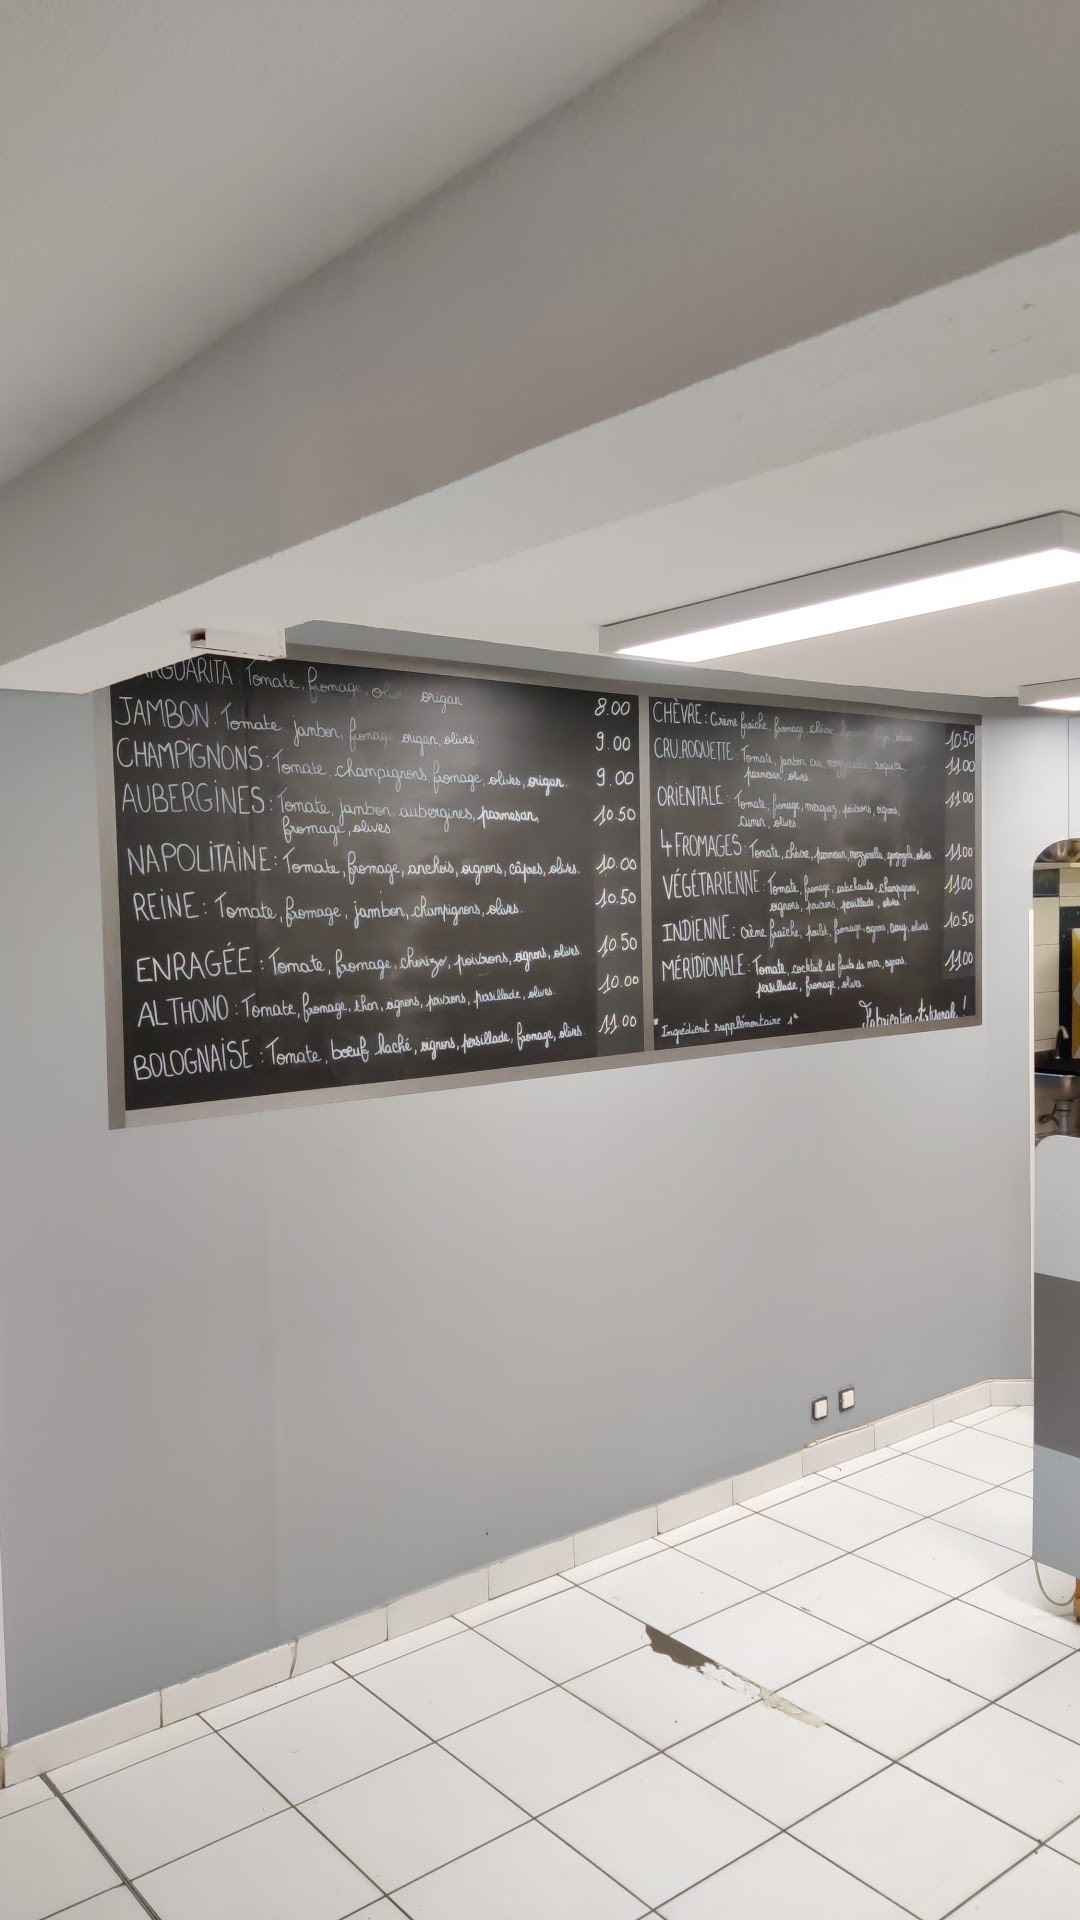 ARGUARITA : Tomate, fromage, oli origan 8.00
JAMBON : Tomate jambon, fromage origan, olives, 9.00
CHAMPIGNONS : Tomate, champignons, fromage, olives, origan. 9.00
AUBERGINES : Tomate, jambon, aubergines, parmesan, 10.50
fromage, olives.
NAPOLITAINE : Tomate, fromage, anchois, oignons, câpres, olives. 10.00
REINE : Tomate, fromage, jambon, champignons, olives. 10.50
ENRAGÉE : Tomate, fromage, chorizo, poivrons, oignons, olives. 10.50
ALTHONO : Tomate, fromage, thon, oignons, poivrons, persillade, olives. 10.00
BOLOGNAISE : Tomate, bœuf haché, oignons, persillade, fromage, olives. 11.00
CHÈVRE : Crème fraîche, fromage, chèvre olives 10.50
CRU.ROQUETTE : Tomate, jambon cru, mozzarella, roquette, 11.00
parmesan, olives.
ORIENTALE : Tomate, fromage, merguez, poivrons, oignons, 11.00
cumin, olives.
4 FROMAGES : Tomate, chèvre, parmesan, mozzarella, gorgonzola, olives. 11.00
VÉGÉTARIENNE : Tomate, fromage, artichauts, champignons, 11.00
oignons, poivrons, persillade, olives
INDIENNE : crème fraîche, poulet, fromage, oignons, curry, olives. 10.50
MÉRIDIONALE : Tomate, cocktail de fruits de mer, oignons, 11.00
persillade, fromage, olives.
* Ingrédient supplémentaire 1€
Fabrication Artisanale !